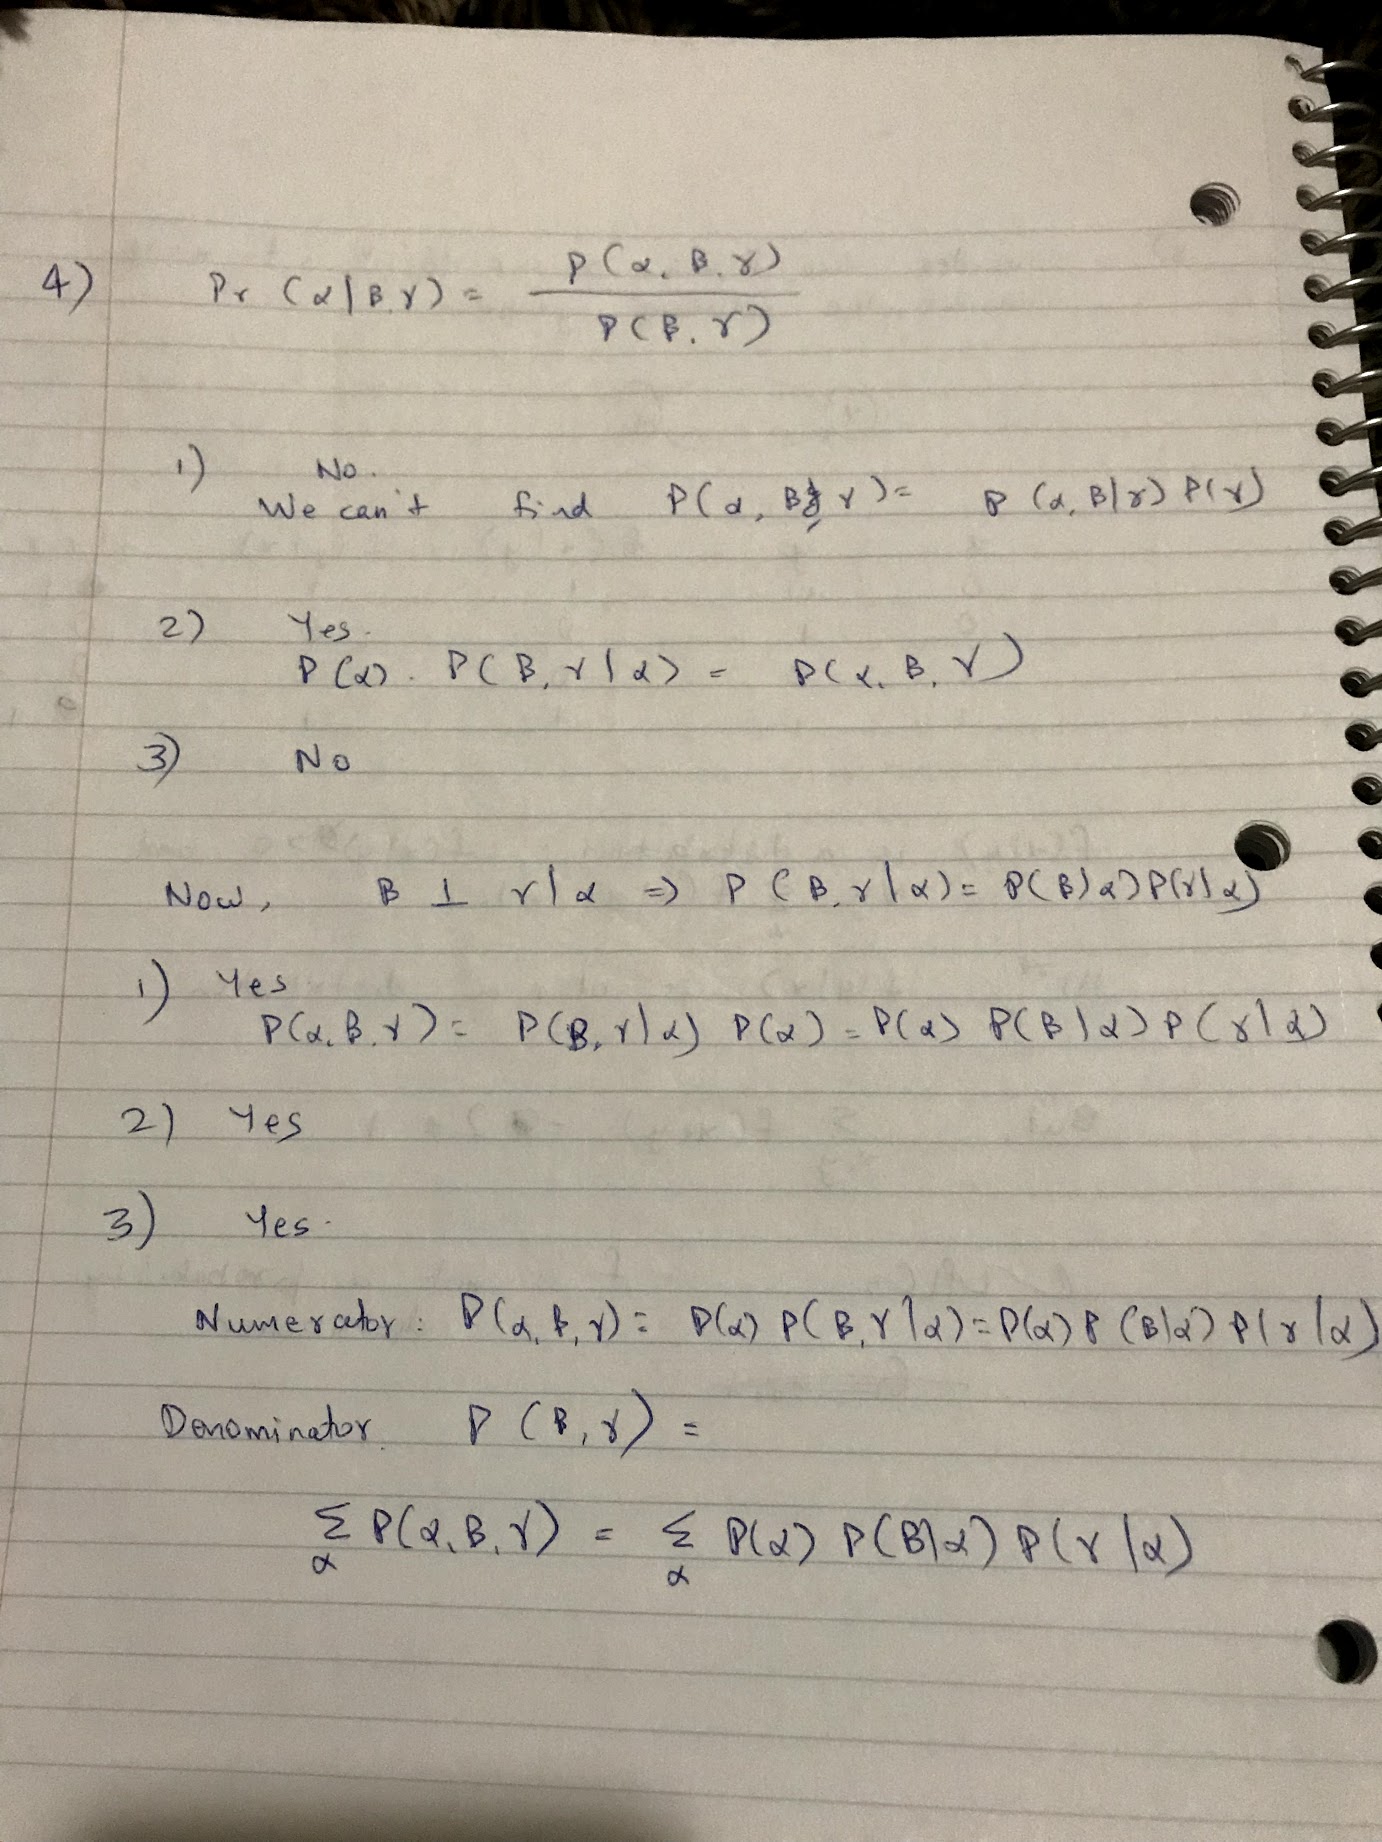 4) Pr (α|B,γ) = P(α, B, γ) / P(B, γ)
1) No.
We can't find P(α, B, γ) = P(α, B|γ) P(γ)
2) Yes.
P(α). P(B, γ|α) = P(α, B, γ)
3) No
Now, B ⊥ γ|α => P(B, γ|α) = P(B|α)P(γ|α)
1) Yes
P(α, B, γ) = P(B, γ|α) P(α) = P(α) P(B|α) P(γ|α)
2) Yes
3) Yes.
Numerator: P(α, B, γ) = P(α) P(B, γ|α) = P(α) P(B|α) P(γ|α)
Denominator. P(B, γ) =
Σ_α P(α, B, γ) = Σ_α P(α) P(B|α) P(γ|α)